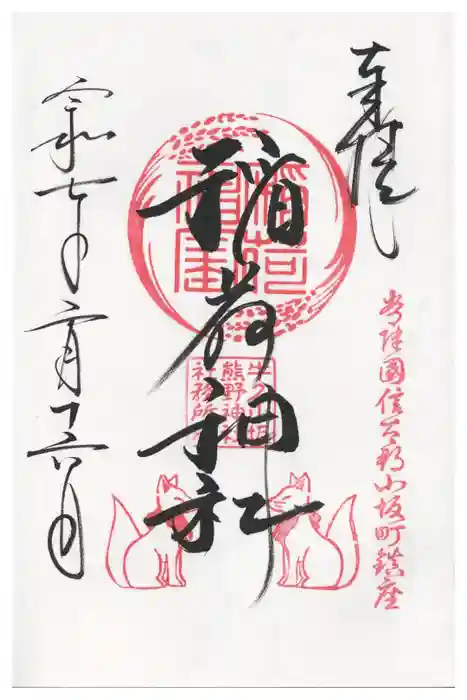 奉拝
常陸國信太郡小坂町鎮座
稲荷
稲荷神社
牛久小坂
熊野神社
社務所
令和七年二月十六日